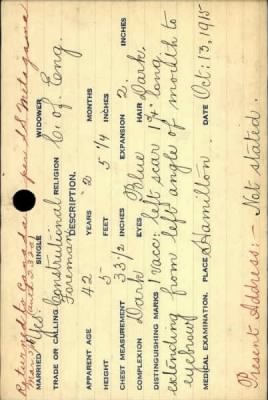 Returned to Canada per SS Metagama
MARRIED Yes. SINGLE WIDOWER
TRADE OR CALLING Constructional RELIGION C. of Eng.
Foreman DESCRIPTION.
APPARENT AGE 42 YEARS 2 MONTHS
HEIGHT 5 FEET 5 1/4 INCHES
CHEST MEASUREMENT 33 1/2 INCHES EXPANSION 2 INCHES
COMPLEXION Dark EYES Blue HAIR Dark.
DISTINGUISHING MARKS 1 Vacc: left scar 1 3/4" long
extending from left angle of mouth to
eyebrow
MEDICAL EXAMINATION. PLACE Hamilton DATE Oct: 13, 1915
Present Address: Not stated.